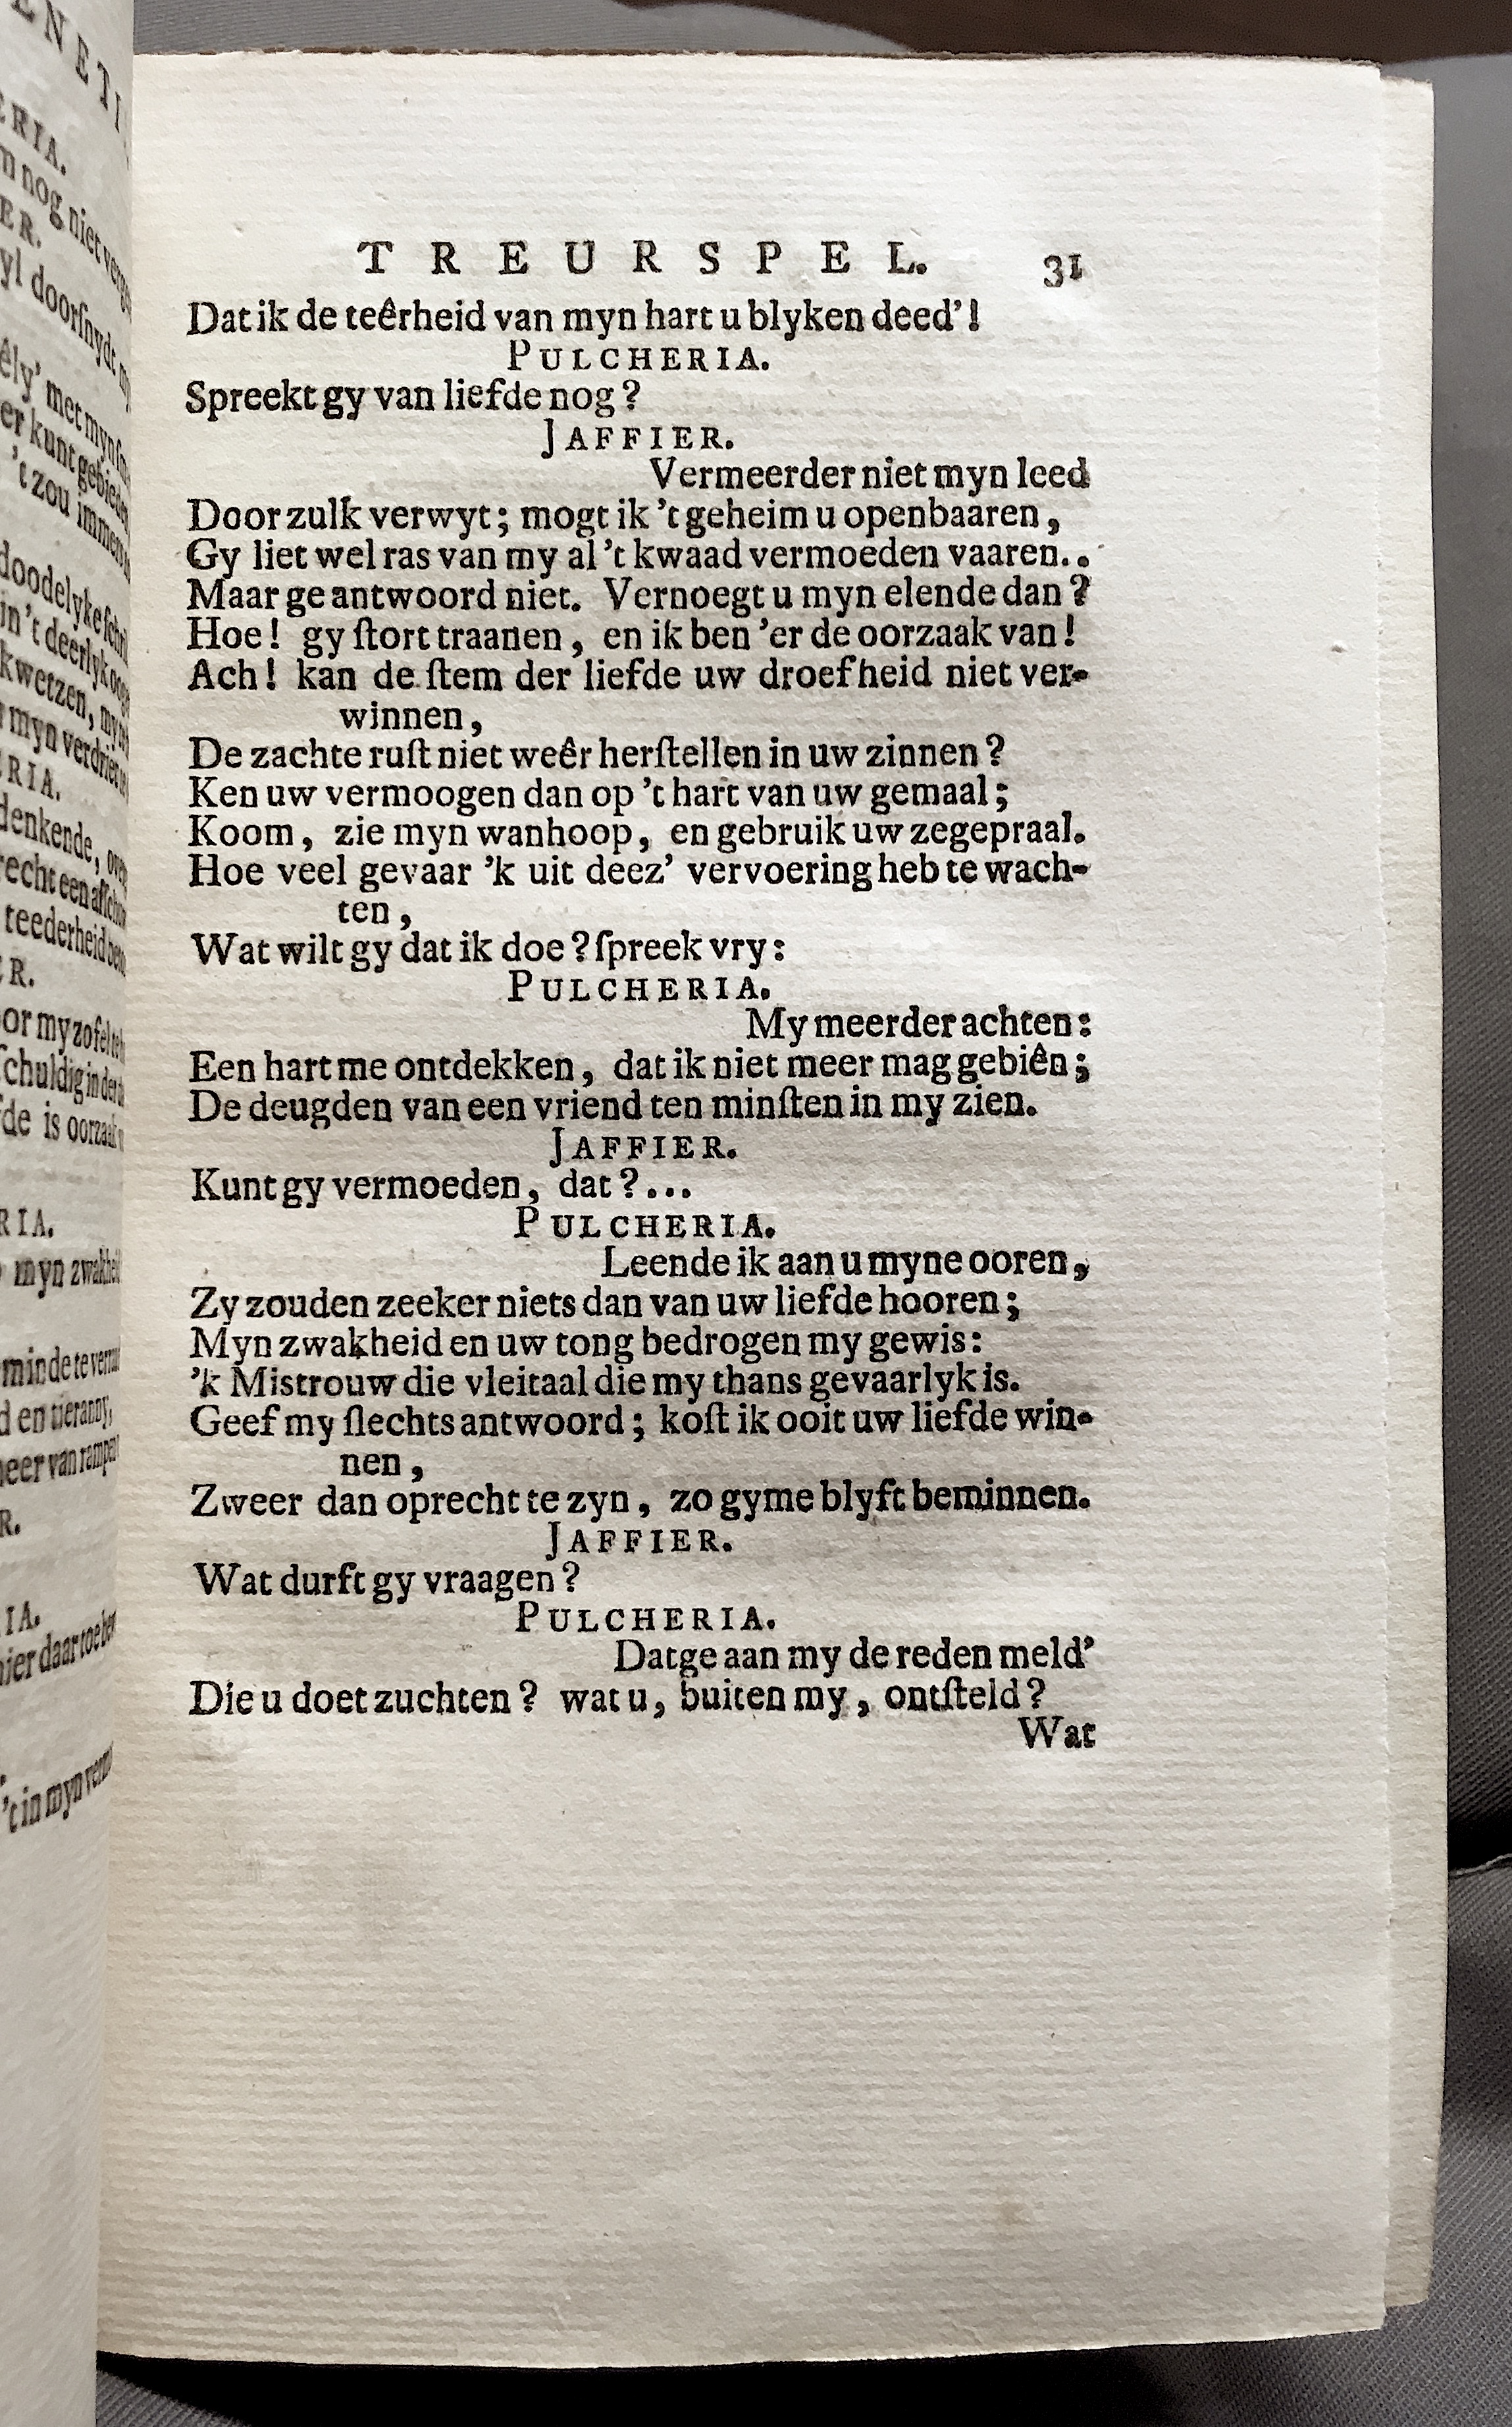 TREURSPEL. 31
Dat ik de teêrheid van myn hart u blyken deed'!
PULCHERIA.
Spreekt gy van liefde nog?
JAFFIER.
Vermeerder niet myn leed
Door zulk verwyt; mogt ik 't geheim u openbaaren,
Gy liet wel ras van my al 't kwaad vermoeden vaaren..
Maar ge antwoord niet. Vernoegt u myn elende dan?
Hoe! gy ſtort traanen, en ik ben 'er de oorzaak van!
Ach! kan de ſtem der liefde uw droefheid niet ver-
winnen,
De zachte ruſt niet weêr herſtellen in uw zinnen?
Ken uw vermoogen dan op 't hart van uw gemaal;
Koom, zie myn wanhoop, en gebruik uw zegepraal.
Hoe veel gevaar 'k uit deez' vervoering heb te wach-
ten,
Wat wilt gy dat ik doe? ſpreek vry:
PULCHERIA.
My meerder achten:
Een hart me ontdekken, dat ik niet meer mag gebiên;
De deugden van een vriend ten minſten in my zien.
JAFFIER.
Kunt gy vermoeden, dat?...
PULCHERIA.
Leende ik aan u myne ooren,
Zy zouden zeeker niets dan van uw liefde hooren;
Myn zwakheid en uw tong bedrogen my gewis:
'k Mistrouw die vleitaal die my thans gevaarlyk is.
Geef my ſlechts antwoord; koſt ik ooit uw liefde win-
nen,
Zweer dan oprecht te zyn, zo gy me blyft beminnen.
JAFFIER.
Wat durft gy vraagen?
PULCHERIA.
Dat ge aan my de reden meld'
Die u doet zuchten? wat u, buiten my, ontſteld?
Wat